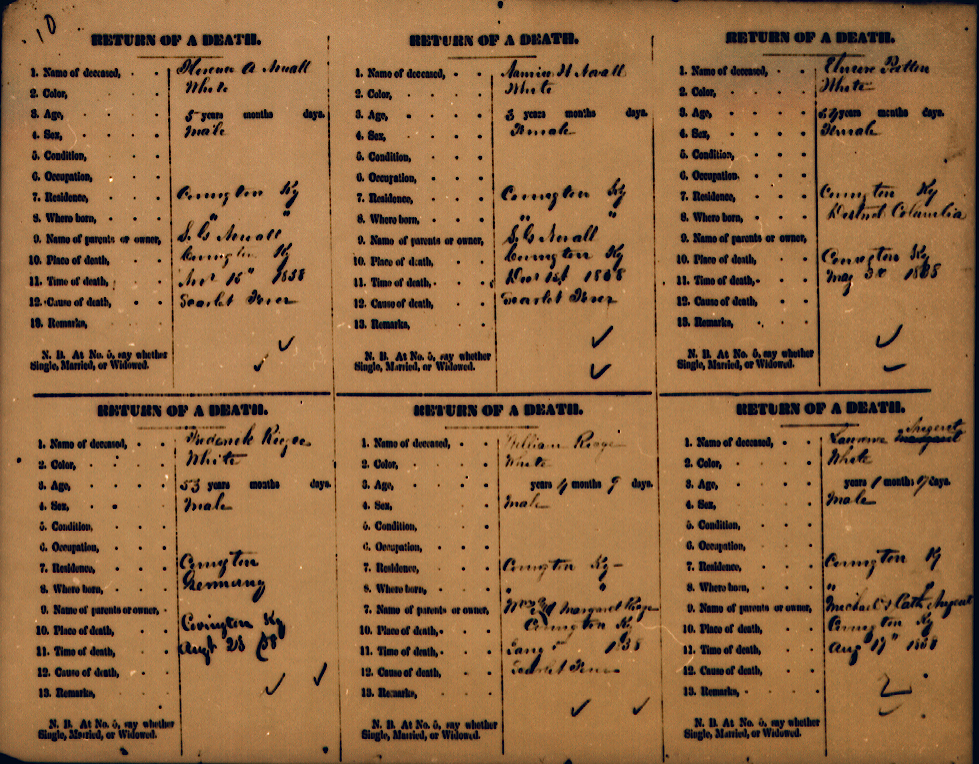 10
RETURN OF A DEATH.
1. Name of deceased, Florence A
2. Color, White
3. Age, 5 years months days.
4. Sex, Male
5. Condition,
6. Occupation,
7. Residence, Covington Ky
8. Where born, " "
9. Name of parents or owner, S. G.
10. Place of death, Covington Ky
11. Time of death, 1858
12. Cause of death, Scarlet Fever
13. Remarks,
N. B. At No. 5, say whether
Single, Married, or Widowed.
RETURN OF A DEATH.
1. Name of deceased,
2. Color, White
3. Age, 3 years months days.
4. Sex, Female
5. Condition,
6. Occupation,
7. Residence, Covington Ky
8. Where born, " "
9. Name of parents or owner, S. G.
10. Place of death, Covington Ky
11. Time of death, 1st 1858
12. Cause of death, Scarlet Fever
13. Remarks,
N. B. At No. 5, say whether
Single, Married, or Widowed.
RETURN OF A DEATH.
1. Name of deceased, Patton
2. Color, White
3. Age, years months days.
4. Sex, Female
5. Condition,
6. Occupation,
7. Residence, Covington Ky
8. Where born, Columbia
9. Name of parents or owner,
10. Place of death, Covington Ky
11. Time of death, May 1858
12. Cause of death,
13. Remarks,
N. B. At No. 5, say whether
Single, Married, or Widowed.
RETURN OF A DEATH.
1. Name of deceased, Frederick
2. Color, White
3. Age, 53 years months days.
4. Sex, Male
5. Condition,
6. Occupation,
7. Residence, Covington
8. Where born, Germany
9. Name of parents or owner,
10. Place of death, Covington Ky
11. Time of death, Augt 28 58
12. Cause of death,
13. Remarks,
N. B. At No. 5, say whether
Single, Married, or Widowed.
RETURN OF A DEATH.
1. Name of deceased, William
2. Color, White
3. Age, years 4 months 9 days.
4. Sex, Male
5. Condition,
6. Occupation,
7. Residence, Covington Ky
8. Where born, " "
7. Name of parents or owner, Margaret
10. Place of death, Covington Ky
11. Time of death, 1858
12. Cause of death, Scarlet Fever
13. Remarks,
N. B. At No. 5, say whether
Single, Married, or Widowed.
RETURN OF A DEATH.
1. Name of deceased, Lawrence
2. Color, White
3. Age, years 1 months 17 days.
4. Sex, Male
5. Condition,
6. Occupation,
7. Residence, Covington Ky
8. Where born, " "
9. Name of parents or owner, Michael & Cath
10. Place of death, Covington Ky
11. Time of death, Aug 17" 1858
12. Cause of death,
13. Remarks,
N. B. At No. 5, say whether
Single, Married, or Widowed.